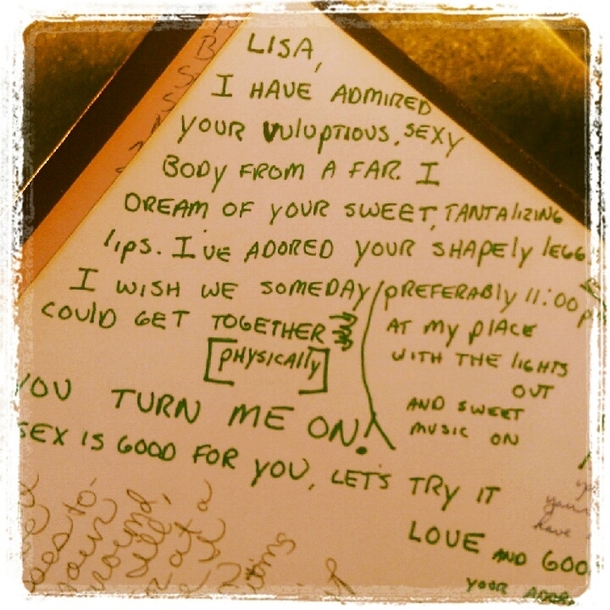 LISA,
I HAVE ADMIRED
YOUR VULUPTIOUS, SEXY
BODY FROM A FAR. I
DREAM OF YOUR SWEET, TANTALIZING
LIPS. I'VE ADORED YOUR SHAPELY LEGS
I WISH WE SOMEDAY
COULD GET TOGETHER
[PHYSICALLY]
PREFERABLY 11:00 P
AT MY PLACE
WITH THE LIGHTS
OUT
AND SWEET
MUSIC ON
YOU TURN ME ON!
SEX IS GOOD FOR YOU, LET'S TRY IT
LOVE AND GOO
YOUR
your
have